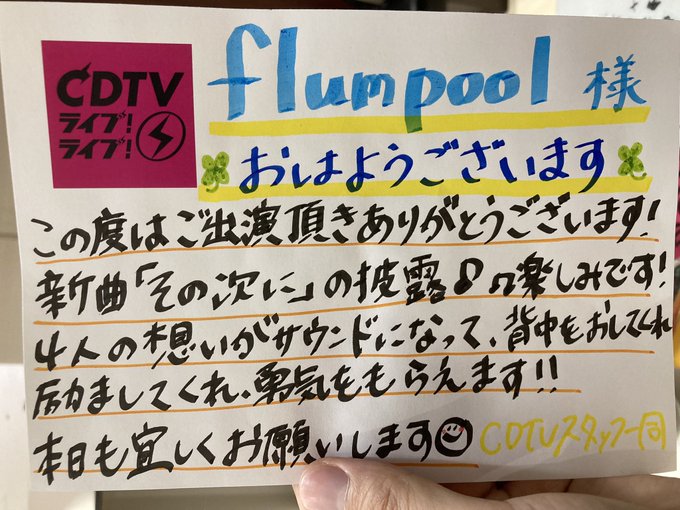 CDTV
ライブ!
ライブ!
flumpool 様
おはようございます
この度はご出演頂きありがとうございます!
新曲「その次に」の披露♪♫楽しみです!
4人の想いがサウンドになって、背中をおしてくれ
励ましてくれ、勇気をもらえます!!
本日も宜しくお願いします
CDTVスタッフ一同